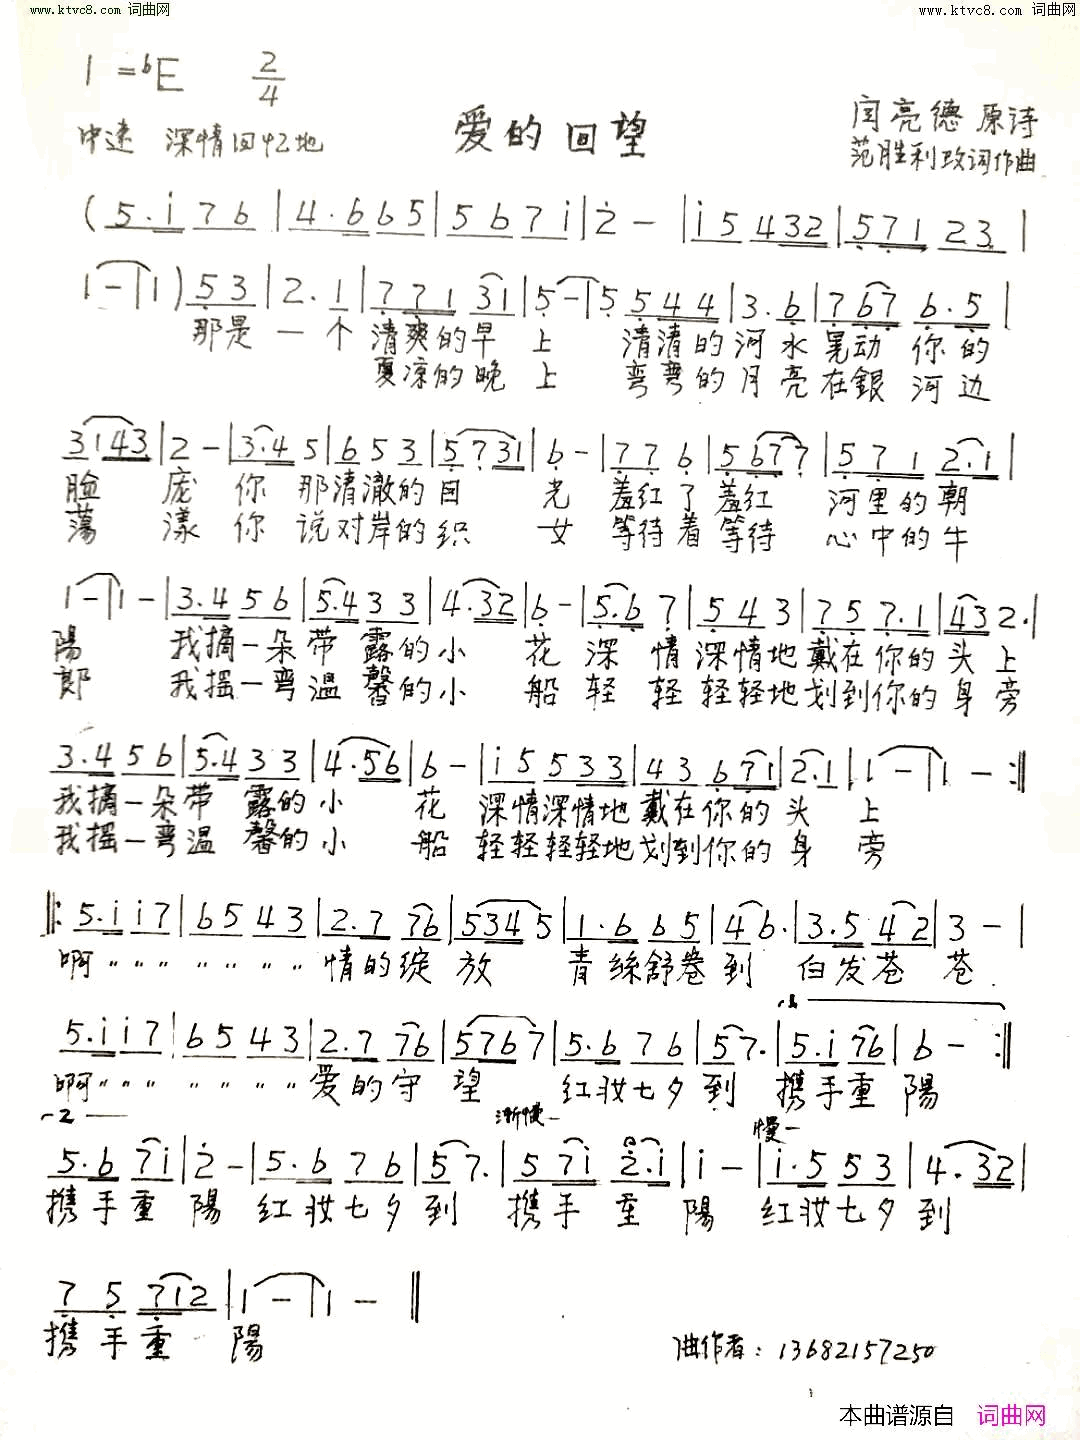 www.ktvc8.com 词曲网 www.ktvc8.com 词曲网
1=♭E 2/4
中速 深情回忆地
爱的回望
闫亮德 原诗
范胜利改词作曲
(5.i 7 6 | 4.6 6 5 | 5 6 7 i | 2 - | i 5 4 3 2 | 5 7 1 2 3 |
1 - | 1 ) 5 3 | 2. 1 | 7 7 1 3 1 | 5 - | 5 5 4 4 | 3. 6 | 7 6 7 6. 5 |
那是一个清爽的早上 清清的河水晃动你的
夏凉的晚上 弯弯的月亮在銀河边
3 1 4 3 | 2 - | 3.4 5 | 6 5 3 | 5 7 3 1 | 6 - | 7 7 6 | 5 6 7 7 | 5 7 1 2.1 |
脸庞你那清澈的目光羞红了羞红河里的朝
荡漾你说对岸的织女等待着等待心中的牛
1 - | 1 - | 3.4 5 6 | 5.4 3 3 | 4.3 2 | 6 - | 5.6 7 | 5 4 3 | 7 5 7.1 | 4 3 2. |
陽 我摘一朵带露的小花深情深情地戴在你的头上
郎 我摇一弯温馨的小船轻轻轻轻地划到你的身旁
3.4 5 6 | 5.4 3 3 | 4.5 6 | 6 - | i 5 5 3 3 | 4 3 6 7 1 | 2.1 | 1 - | 1 - :||
我摘一朵带露的小花深情深情地戴在你的头上
我摇一弯温馨的小船轻轻轻轻地划到你的身旁
||: 5.i i 7 | 6 5 4 3 | 2.7 7 6 | 5 3 4 5 | 1.6 6 5 | 4 6. | 3.5 4 2 | 3 - |
啊〃〃〃〃〃〃〃情的绽放青絲舒卷到白发苍苍
1.
5.i i 7 | 6 5 4 3 | 2.7 7 6 | 5 7 6 7 | 5.6 7 6 | 5 7. | 5.i 7 6 | 6 - :||
啊〃〃〃〃〃〃〃爱的守望红妆七夕到携手重陽
2. 渐慢 慢
5.6 7 i | 2 - | 5.6 7 6 | 5 7. | 5 7 i 2.i | i - | i.5 5 3 | 4.3 2 |
携手重陽红妆七夕到携手重陽红妆七夕到
7 5 7 1 2 | 1 - | 1 - ||
携手重陽
曲作者：13682157250
本曲谱源自 词曲网